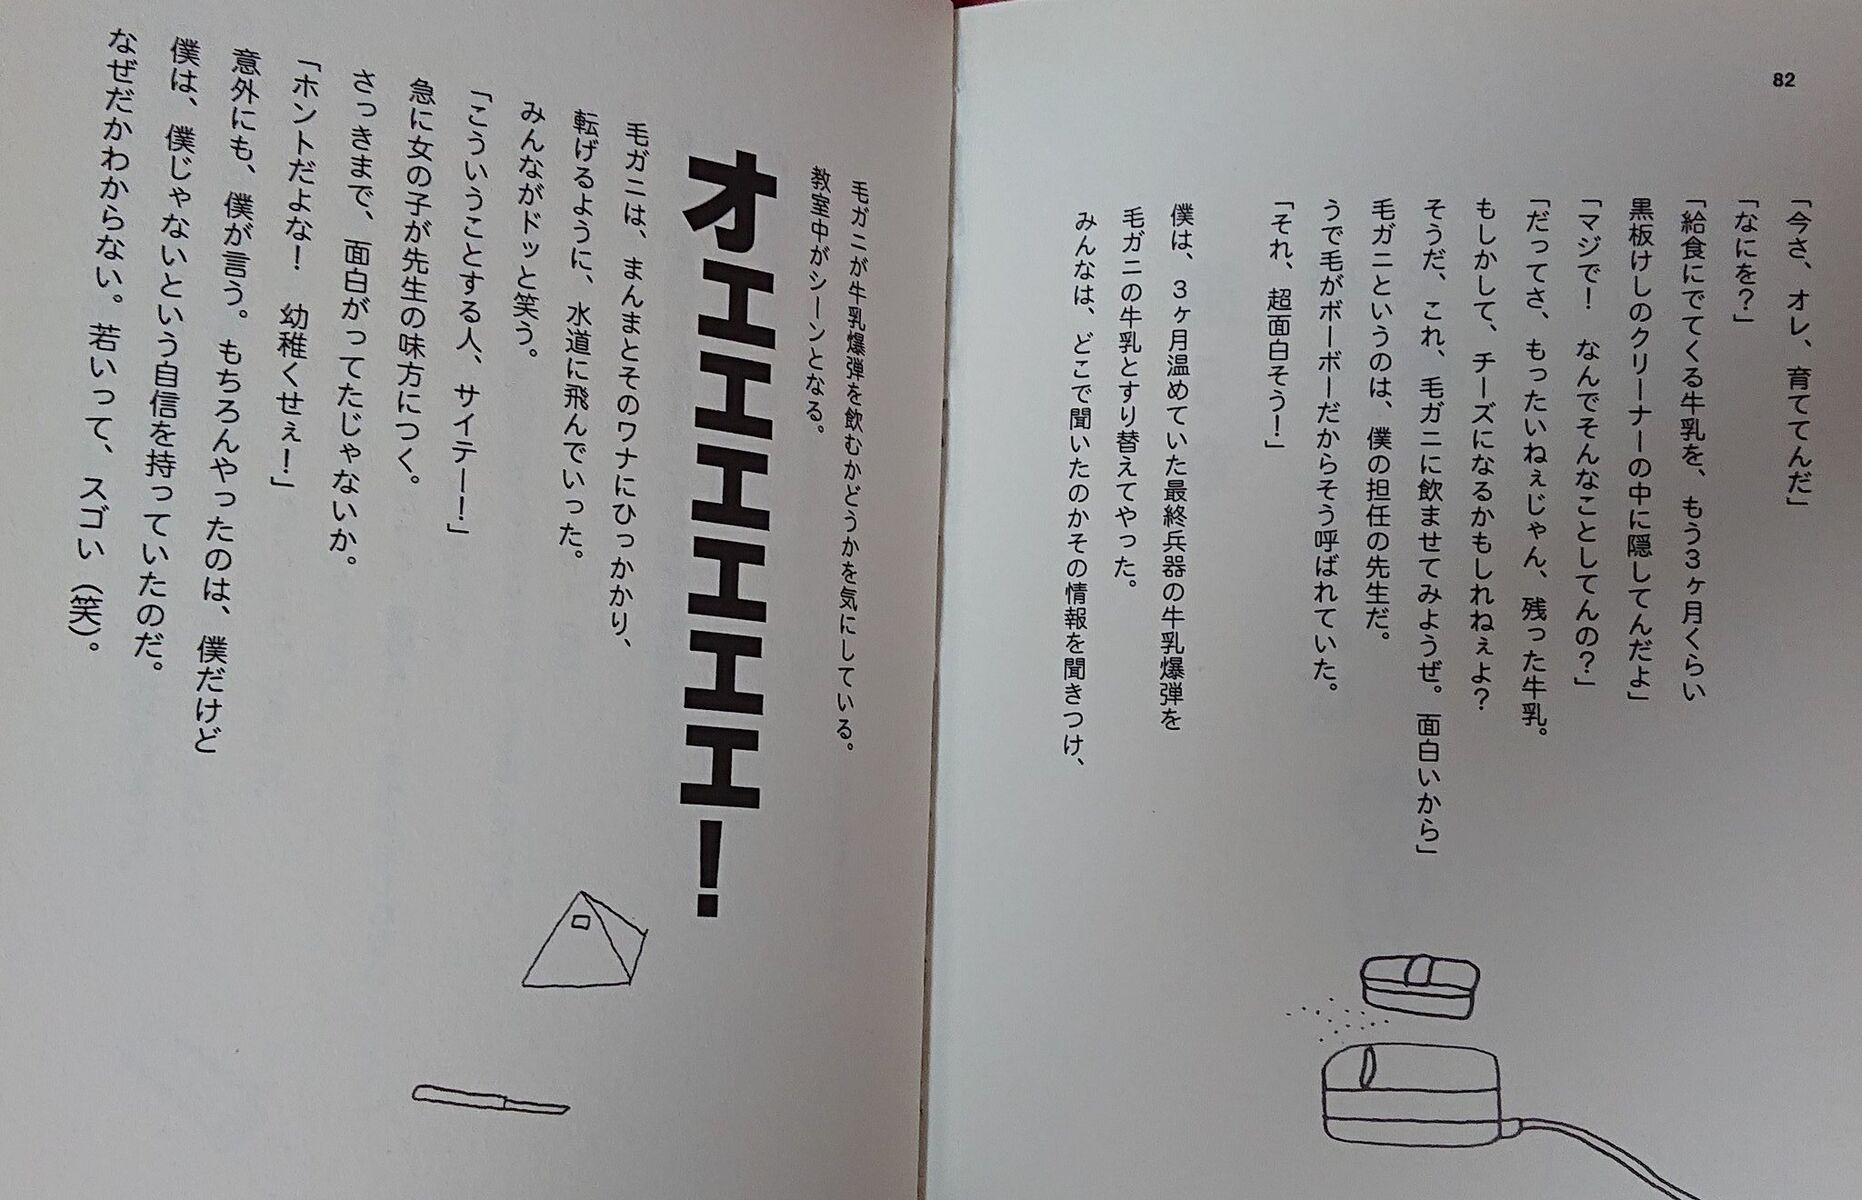 82
「今さ、オレ、育ててんだ」
「なにを？」
「給食にでてくる牛乳を、もう3ヶ月くらい
黒板けしのクリーナーの中に隠してんだよ」
「マジで！　なんでそんなことしてんの？」
「だってさ、もったいねぇじゃん、残った牛乳。
もしかして、チーズになるかもしれねぇよ？
そうだ、これ、毛ガニに飲ませてみようぜ。面白いから」
毛ガニというのは、僕の担任の先生だ。
うで毛がボーボーだからそう呼ばれていた。
「それ、超面白そう！」
僕は、3ヶ月温めていた最終兵器の牛乳爆弾を
毛ガニの牛乳とすり替えてやった。
みんなは、どこで聞いたのかその情報を聞きつけ、
毛ガニが牛乳爆弾を飲むかどうかを気にしている。
教室中がシーンとなる。
オエエエエエエ！
毛ガニは、まんまとそのワナにひっかかり、
転げるように、水道に飛んでいった。
みんながドッと笑う。
「こういうことする人、サイテー！」
急に女の子が先生の味方につく。
さっきまで、面白がってたじゃないか。
「ホントだよな！　幼稚くせぇ！」
意外にも、僕が言う。もちろんやったのは、僕だけど
僕は、僕じゃないという自信を持っていたのだ。
なぜだかわからない。若いって、スゴい（笑）。